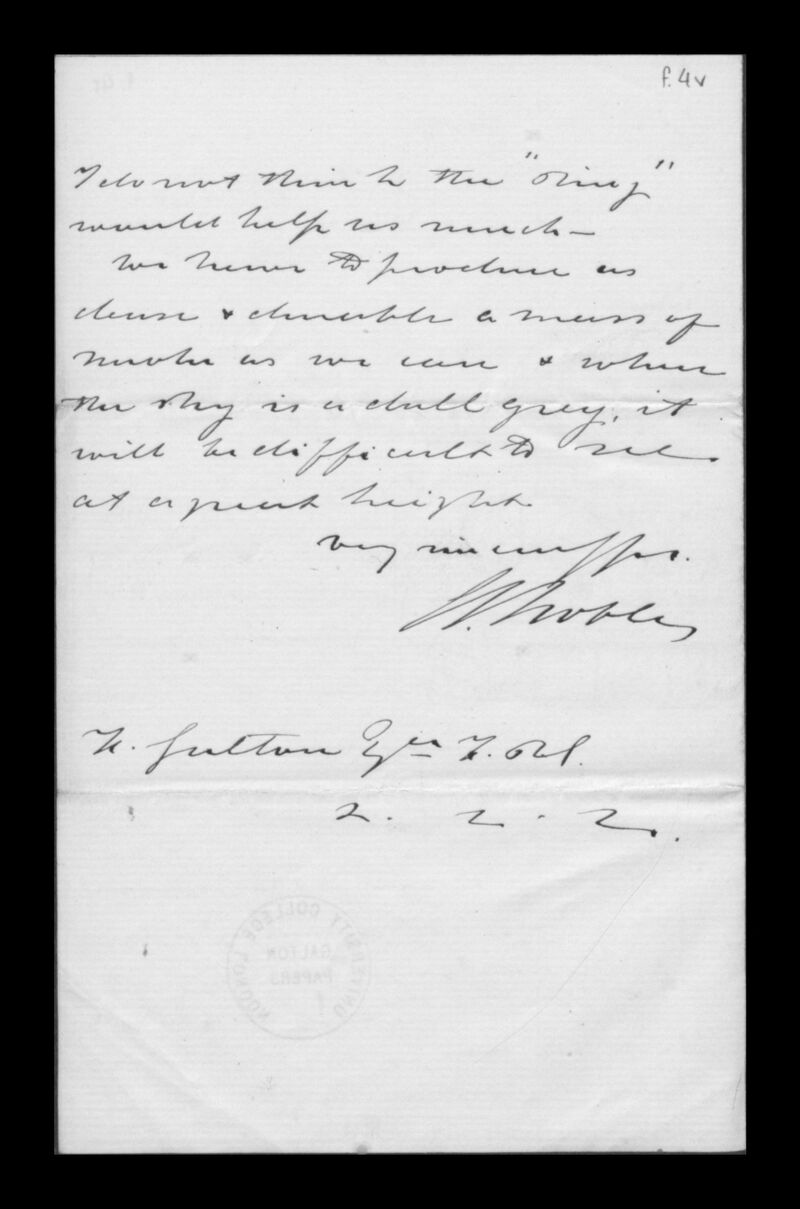 f.4v
I do not think the "ring"
would help us much –
We have to produce as
dense & durable a mass of
smoke as we can & when
the sky is a dull grey, it
will be difficult to see
at a great height.
Very sincerely yrs.
W. Noble
F. Galton Esqre F.R.S.
2. 2. 2.
UNIVERSITY COLLEGE LONDON
GALTON
PAPERS